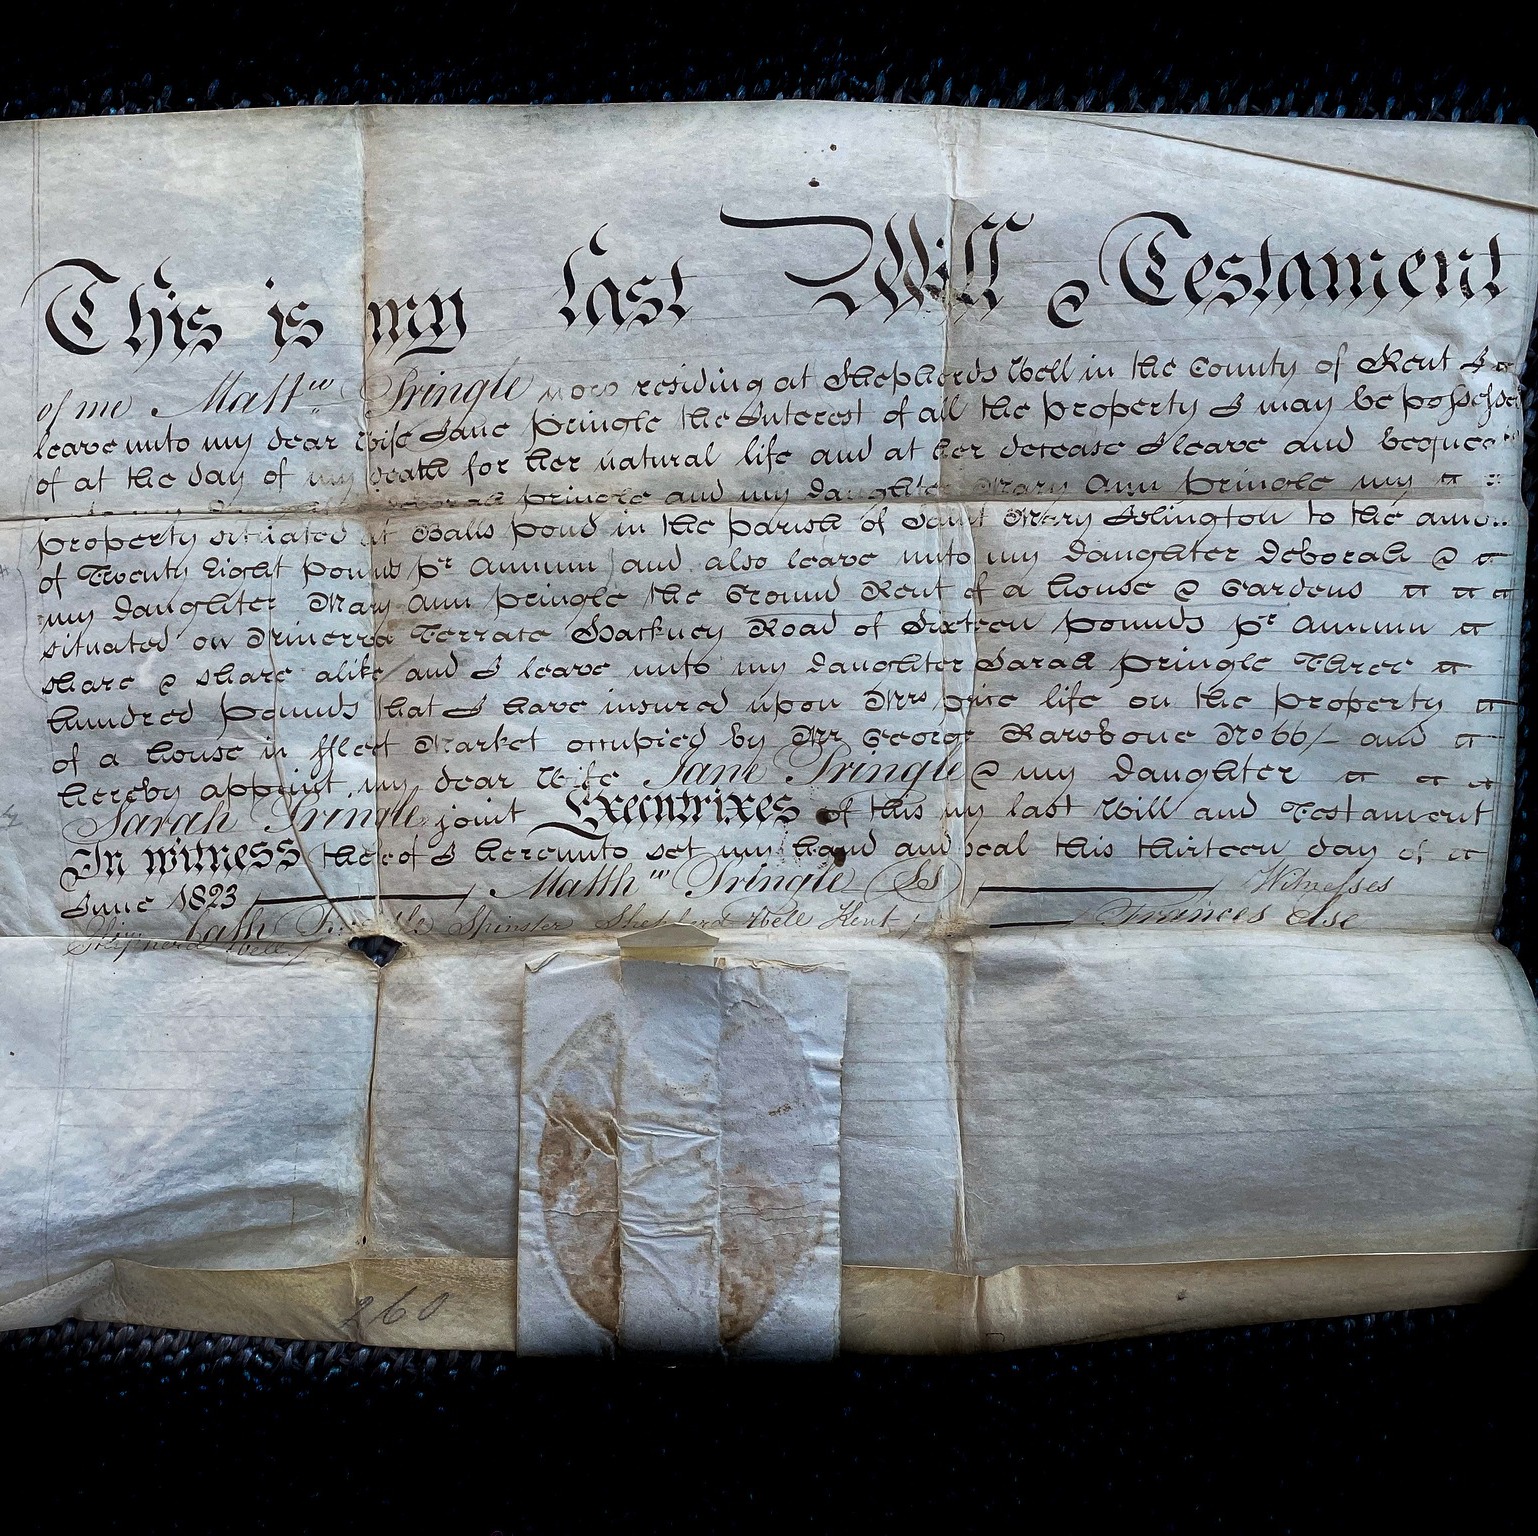 This is my last Will & Testament
of me Matt.w Pringle now residing at Shepherds Well in the County of Kent I
leave unto my dear wife Jane Pringle the Interest of all the property I may be possessed
of at the day of my death for her natural life and at her decease I leave and
Deborah Pringle and my daughter Mary Ann Pringle my
property situated at Balls Pond in the parish of Saint Mary Islington to the
of Twenty Eight pounds pr Annum and also leave unto my daughter Deborah &
my daughter Mary Ann Pringle the Ground Rent of a house & Gardens
situated on Minerva Terrace Hackney Road of Sixteen pounds pr Annum
share & share alike and I leave unto my daughter Sarah Pringle Three
hundred pounds that I have insured upon Mrs price life on the property
of a house in ffleet Market occupied by Mr George Barebone No 66/ and
hereby appoint my dear Wife Jane Pringle & my daughter
Sarah Pringle joint Executrixes of this my last Will and Testament
In witness thereof I hereunto set my hand and seal this thirteen day of
June 1823 Matth.w Pringle (LS) Witnesses
Spinster Shepherd Well Kent Frances Else
Shepherd Well
260